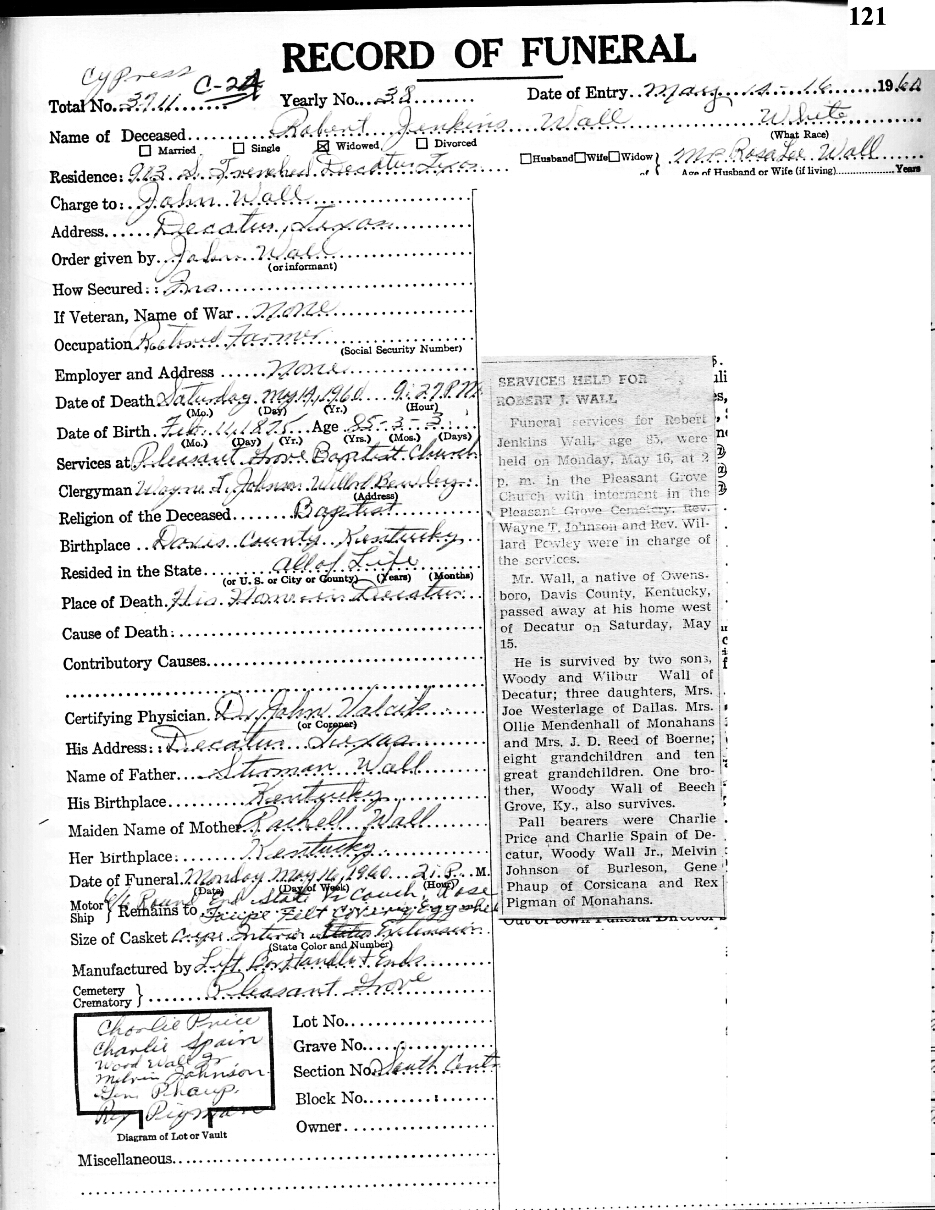 121
RECORD OF FUNERAL
Cypress C-24
Total No. 3711 Yearly No. 38 Date of Entry May 14-16 1960
Name of Deceased Robert Jenkins Wall White
(What Race)
☐ Married ☐ Single ☒ Widowed ☐ Divorced
☐Husband☐Wife☐Widow of } Mrs Rosa Lee Wall
Residence: 903 S. Decatur Texas
Age of Husband or Wife (if living) Years
Charge to: John Wall
Address Decatur, Texas
Order given by John Wall
(or informant)
How Secured: Ins
If Veteran, Name of War None
Occupation Retired Farmer
(Social Security Number)
Employer and Address None
Date of Death Saturday May 14, 1960 9:27 P.M.
(Mo.) (Day) (Yr.) (Hour)
Date of Birth Feb. 11, 1875 Age 85-3-3
(Mo.) (Day) (Yr.) (Yrs.) (Mos.) (Days)
Services at Pleasant Grove Baptist Church
Clergyman Wayne T. Johnson Willard
(Address)
Religion of the Deceased Baptist
Birthplace Davis County Kentucky
Resided in the State All of Life
(or U. S. or City or County) (Years) (Months)
Place of Death His Home in Decatur
Cause of Death:
Contributory Causes
Certifying Physician Dr. John
(or Coroner)
His Address: Decatur Texas
Name of Father Wall
His Birthplace Kentucky
Maiden Name of Mother Rachell Wall
Her Birthplace: Kentucky
Date of Funeral Monday May 16, 1960 2:P. M.
(Date) (Day of Week) (Hour)
Motor Ship } Remains to Round End State Couch, Rose
Felt Covery Eggshell
Size of Casket Crepe Interior Extension
(State Color and Number)
Manufactured by Lift Handles & Ends
Cemetery Crematory } Pleasant Grove
Charlie Price
Charlie Spain
Wood Wall Jr
Melvin Johnson
Gene Phaup
Rex Pigman
Diagram of Lot or Vault
Lot No.
Grave No.
Section No. South Cent
Block No.
Owner
Miscellaneous
SERVICES HELD FOR
ROBERT J. WALL
Funeral services for Robert
Jenkins Wall, age 85, were
held on Monday, May 16, at 2
p. m. in the Pleasant Grove
Church with interment in the
Pleasant Grove Cemetery. Rev.
Wayne T. Johnson and Rev. Wil-
lard Powley were in charge of
the services.
Mr. Wall, a native of Owens-
boro, Davis County, Kentucky,
passed away at his home west
of Decatur on Saturday, May
15.
He is survived by two sons,
Woody and Wilbur Wall of
Decatur; three daughters, Mrs.
Joe Westerlage of Dallas. Mrs.
Ollie Mendenhall of Monahans
and Mrs. J. D. Reed of Boerne;
eight grandchildren and ten
great grandchildren. One bro-
ther, Woody Wall of Beech
Grove, Ky., also survives.
Pall bearers were Charlie
Price and Charlie Spain of De-
catur, Woody Wall Jr., Melvin
Johnson of Burleson, Gene
Phaup of Corsicana and Rex
Pigman of Monahans.
Out of town Funeral Director